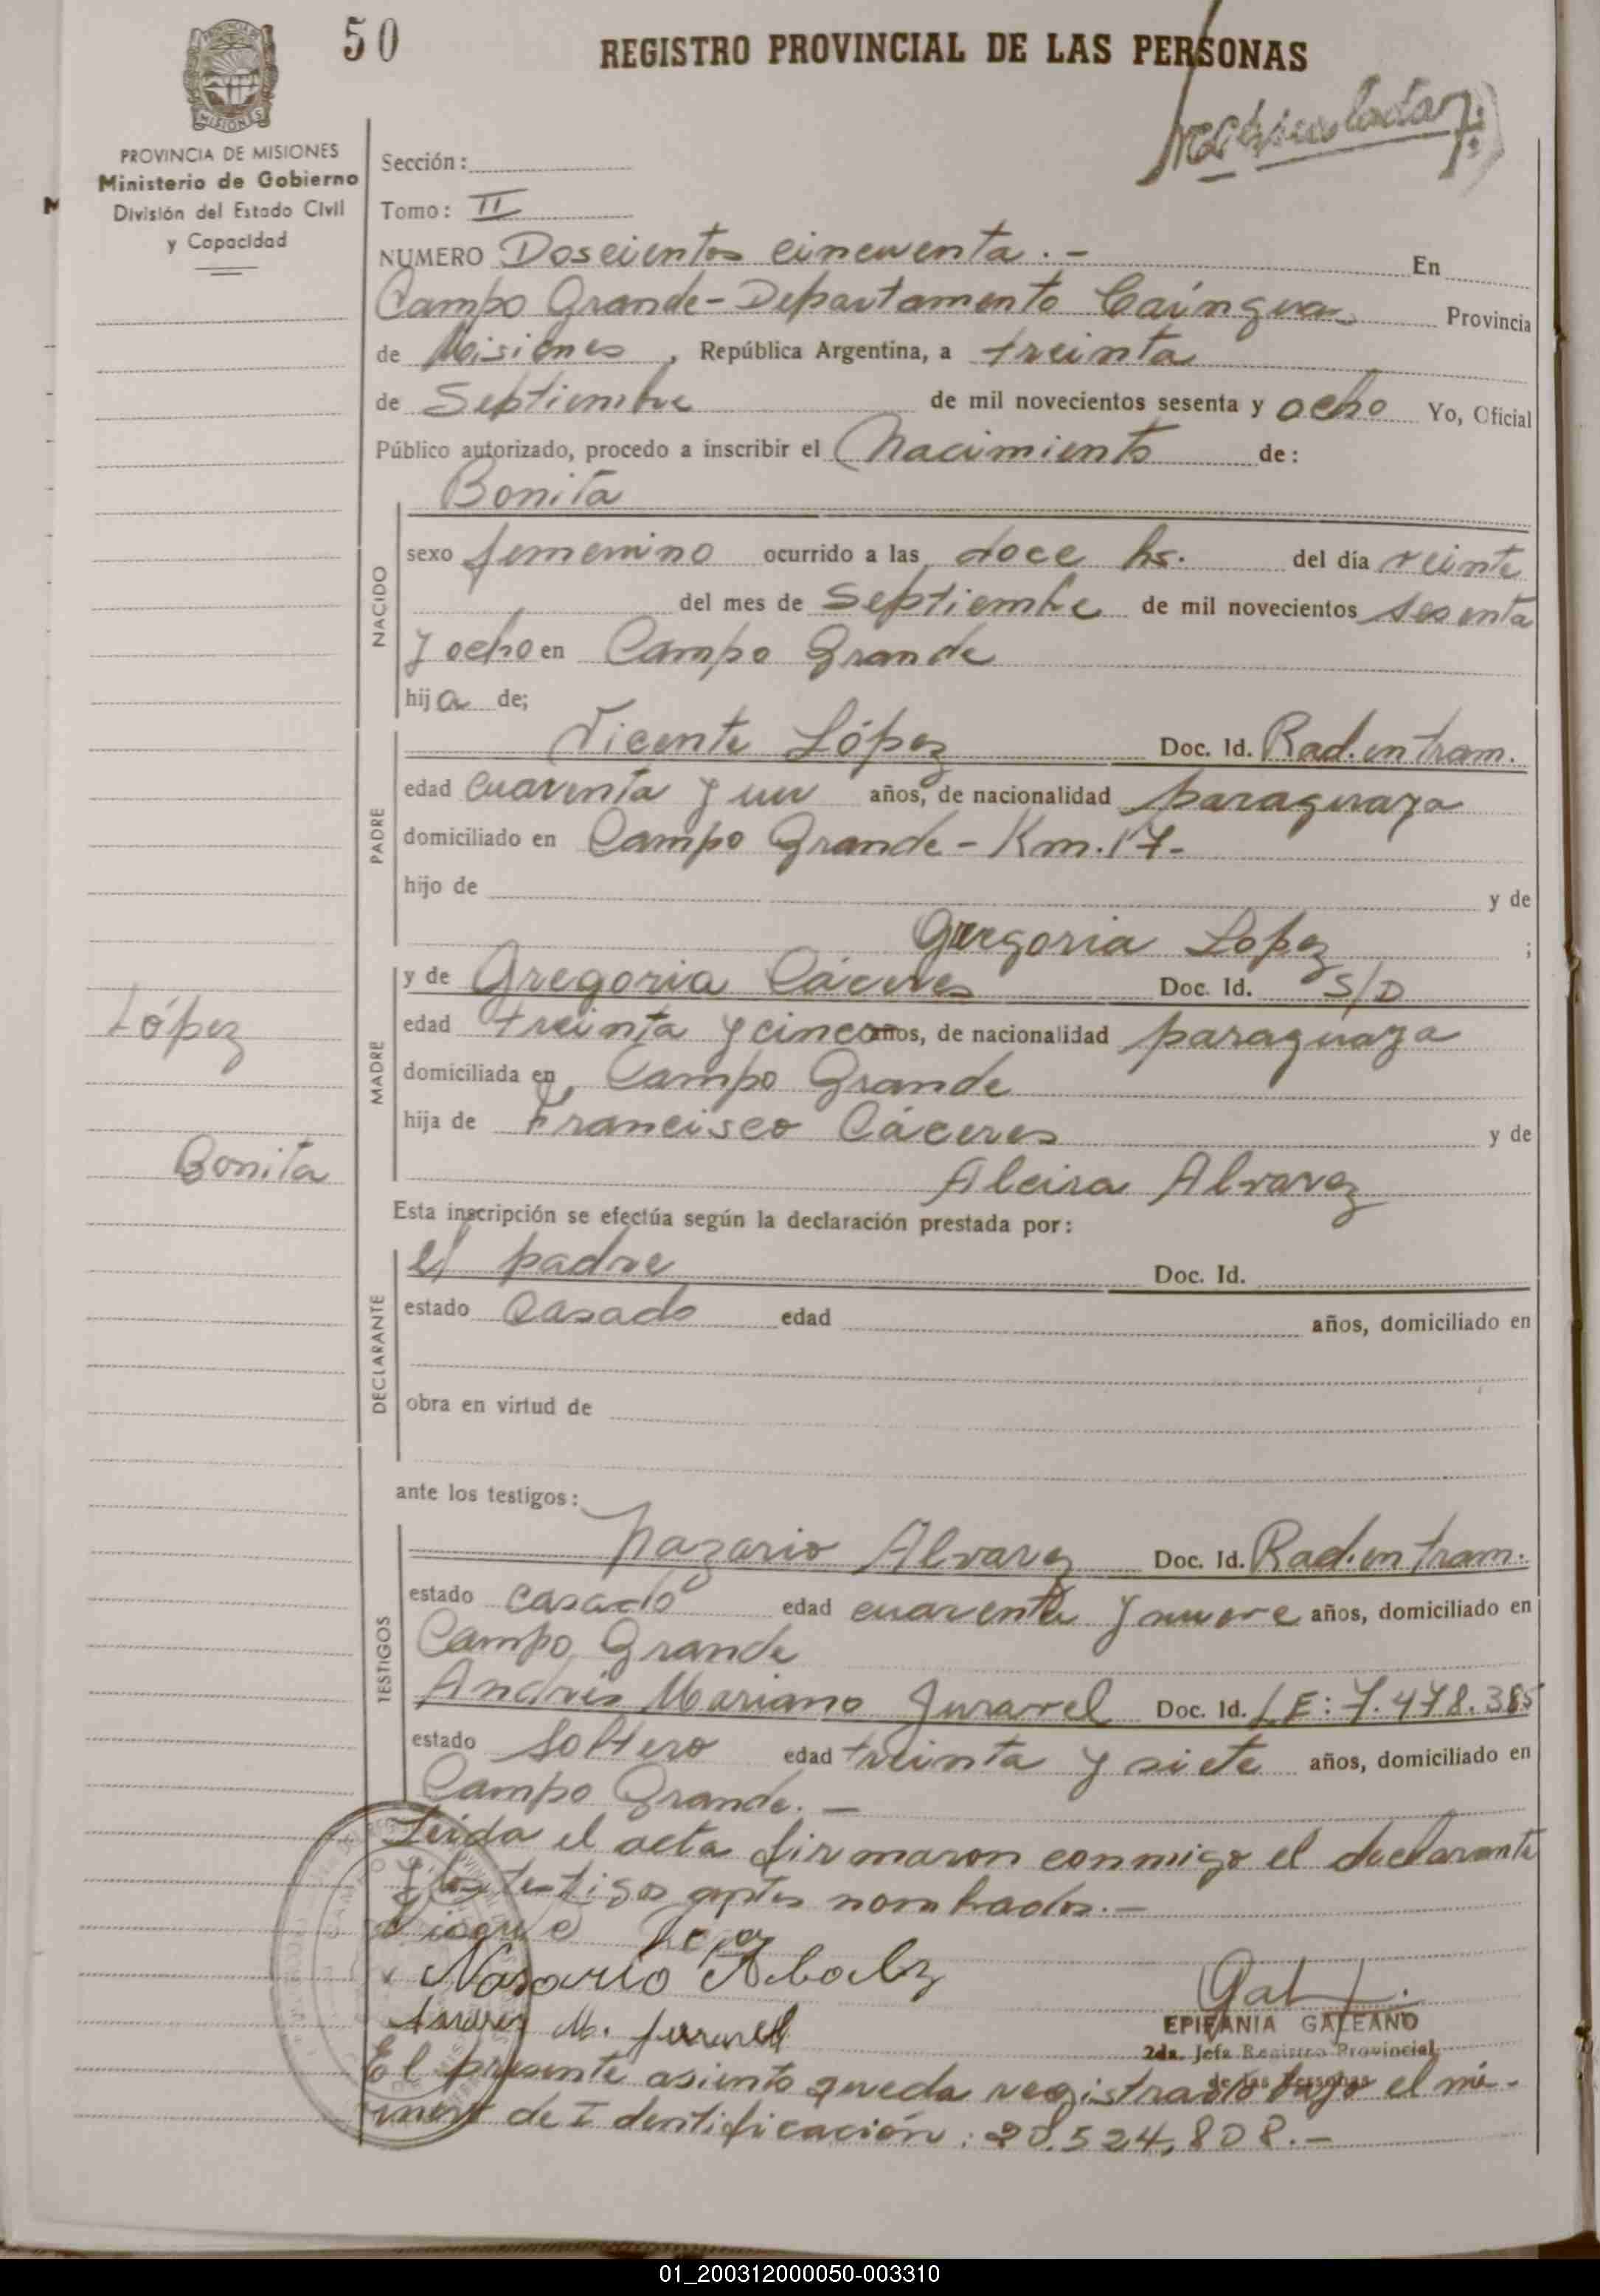 50
REGISTRO PROVINCIAL DE LAS PERSONAS
MISIONES
PROVINCIA DE MISIONES
Ministerio de Gobierno
División del Estado Civil
y Capacidad
Sección:
Tomo: II
NUMERO Doscientos cincuenta.- En
Campo Grande-Departamento Cainguas Provincia
de Misiones, República Argentina, a treinta
de Septiembre de mil novecientos sesenta y ocho Yo, Oficial
Público autorizado, procedo a inscribir el Nacimiento de:
Bonita
NACIDO
sexo femenino ocurrido a las doce hs. del día veinte
del mes de Septiembre de mil novecientos sesenta
y ocho en Campo Grande
hija de;
PADRE
Vicente López Doc. Id. Rad. en tram.
edad cuarenta y un años, de nacionalidad paraguaya
domiciliado en Campo Grande - Km. 17-
hijo de y de
Gregoria Lopez ;
MADRE
y de Gregoria Cáceres Doc. Id. S/D
edad treinta y cinco años, de nacionalidad paraguaya
domiciliada en Campo Grande
hija de Francisco Cáceres y de
Alcira Alvarez
López
Bonita
Esta inscripción se efectúa según la declaración prestada por:
DECLARANTE
el padre Doc. Id.
estado casado edad años, domiciliado en
obra en virtud de
ante los testigos:
TESTIGOS
Nazario Alvarez Doc. Id. Rad. en tram.
estado casado edad cuarenta y nueve años, domiciliado en
Campo Grande
Andrés Mariano Jurarrel Doc. Id. L E: 7.478.385
estado soltero edad treinta y siete años, domiciliado en
Campo Grande.-
Leida el acta firmaron conmigo el declarante
y los testigos antes nombrados.-
Nasario
M.
EPIFANIA GALEANO
2da. Jefa Registro Provincial
de las Personas
El presente asiento queda registrado bajo el nú-
mero de Identificación: 20.524,808.-
01_200312000050-003310